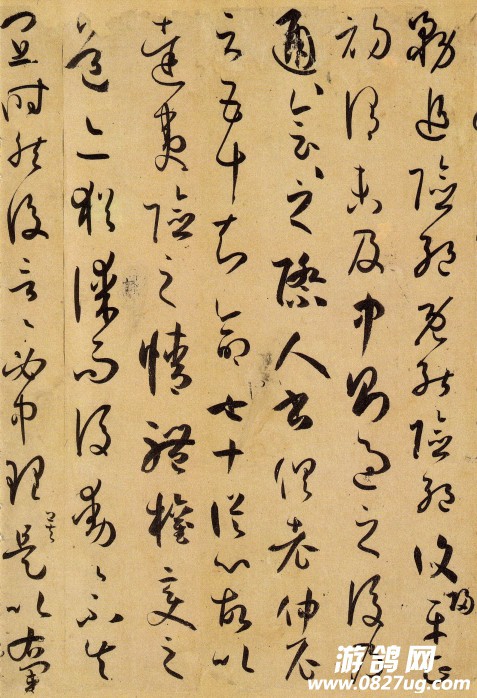 務追險絕既能險絕復歸平正
初謂未及中則過之後乃
通〻會〻之際人書俱老仲尼
云五十知命七十從心故以
達夷險之情體權變之
道亦猶謀而後動〻不失
宜時然後言〻必中理矣是以右軍
游鸽网
www.0827ug.com